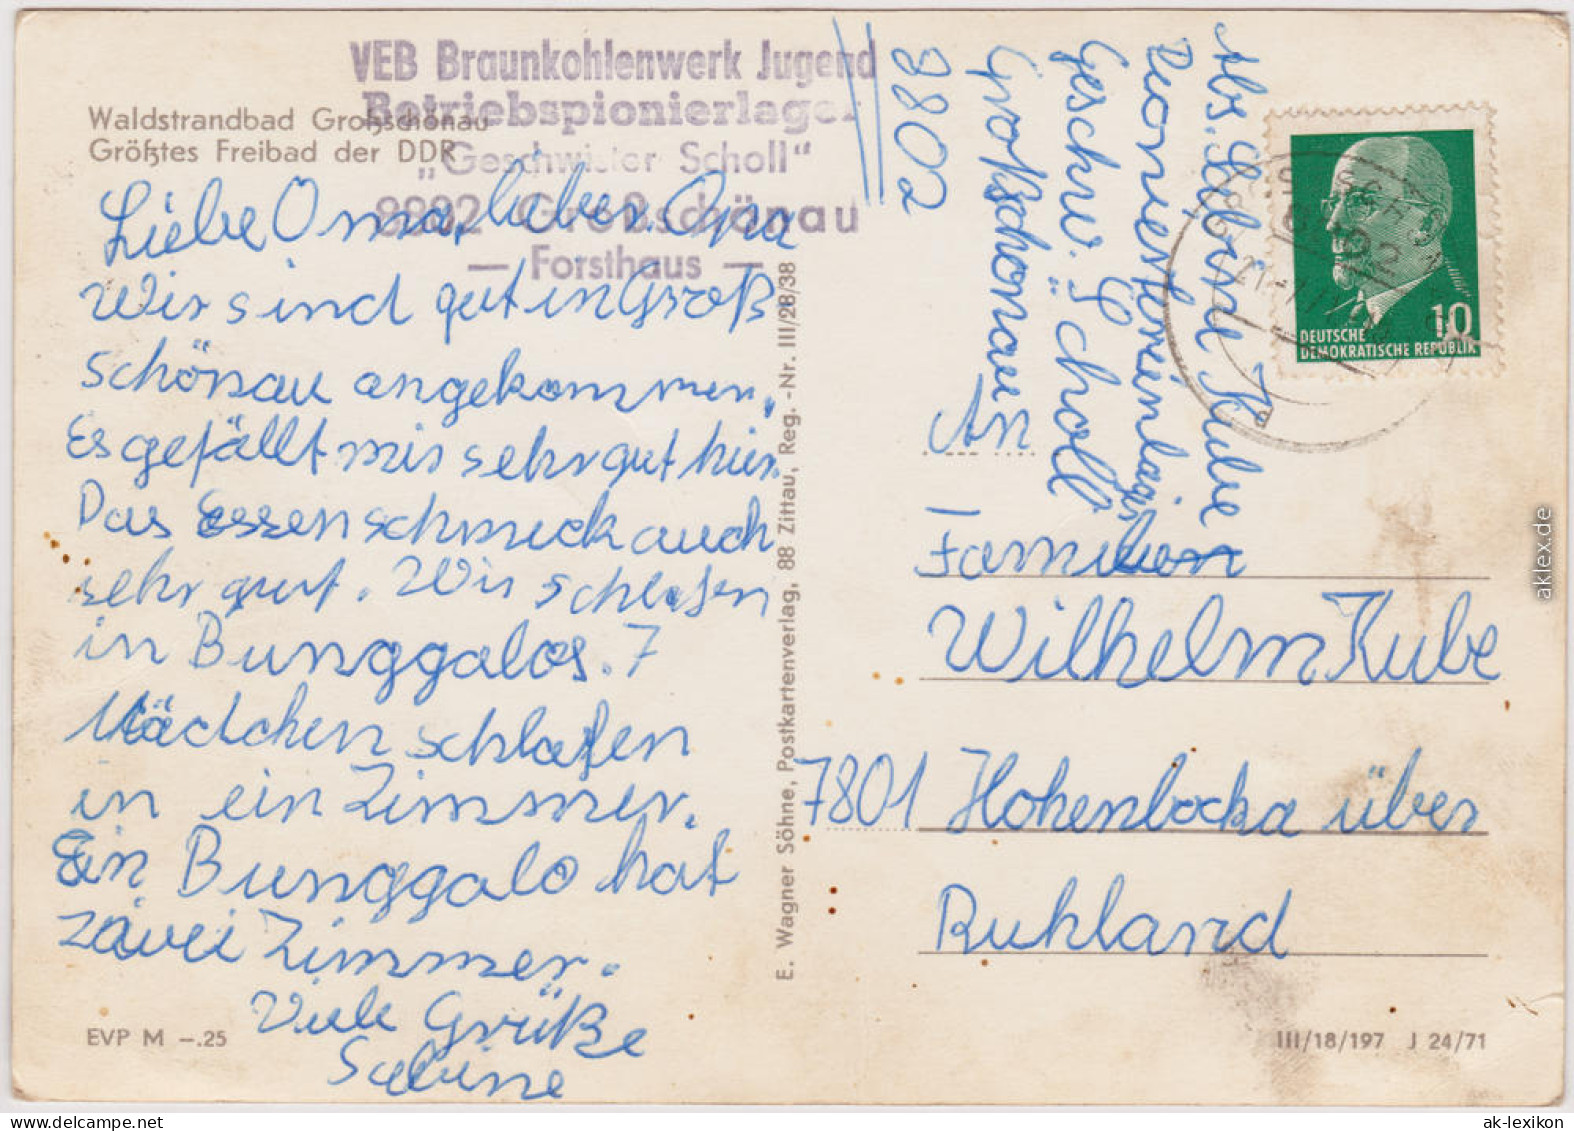 VEB Braunkohlenwerk Jugend
Betriebspionierlager
„Geschwister Scholl"
8802 Großschönau
— Forsthaus —
Waldstrandbad Großschönau
Größtes Freibad der DDR
Liebe Oma, lieber Opa
Wir sind gut in Groß
schönau angekommen.
Es gefällt mir sehr gut hier.
Das Essen schmeck auch
sehr gut. Wir schlafen
in Bunggalos. 7
Mädchen schlafen
in ein Zimmer.
Ein Bunggalo hat
zwei Zimmer.
Viele Grüße
Sabine
EVP M –.25
E. Wagner Söhne, Postkartenverlag, 88 Zittau, Reg. -Nr. III/28/38
Abs. Sabine Kube
Pionierferienlager
Geschw. „Scholl"
Großschönau
8802
10
DEUTSCHE
DEMOKRATISCHE REPUBLIK
An
Familie
Wilhelm Kube
7801 Hohenbocka über
Ruhland
III/18/197 J 24/71
aklex.de
ak-lexikon